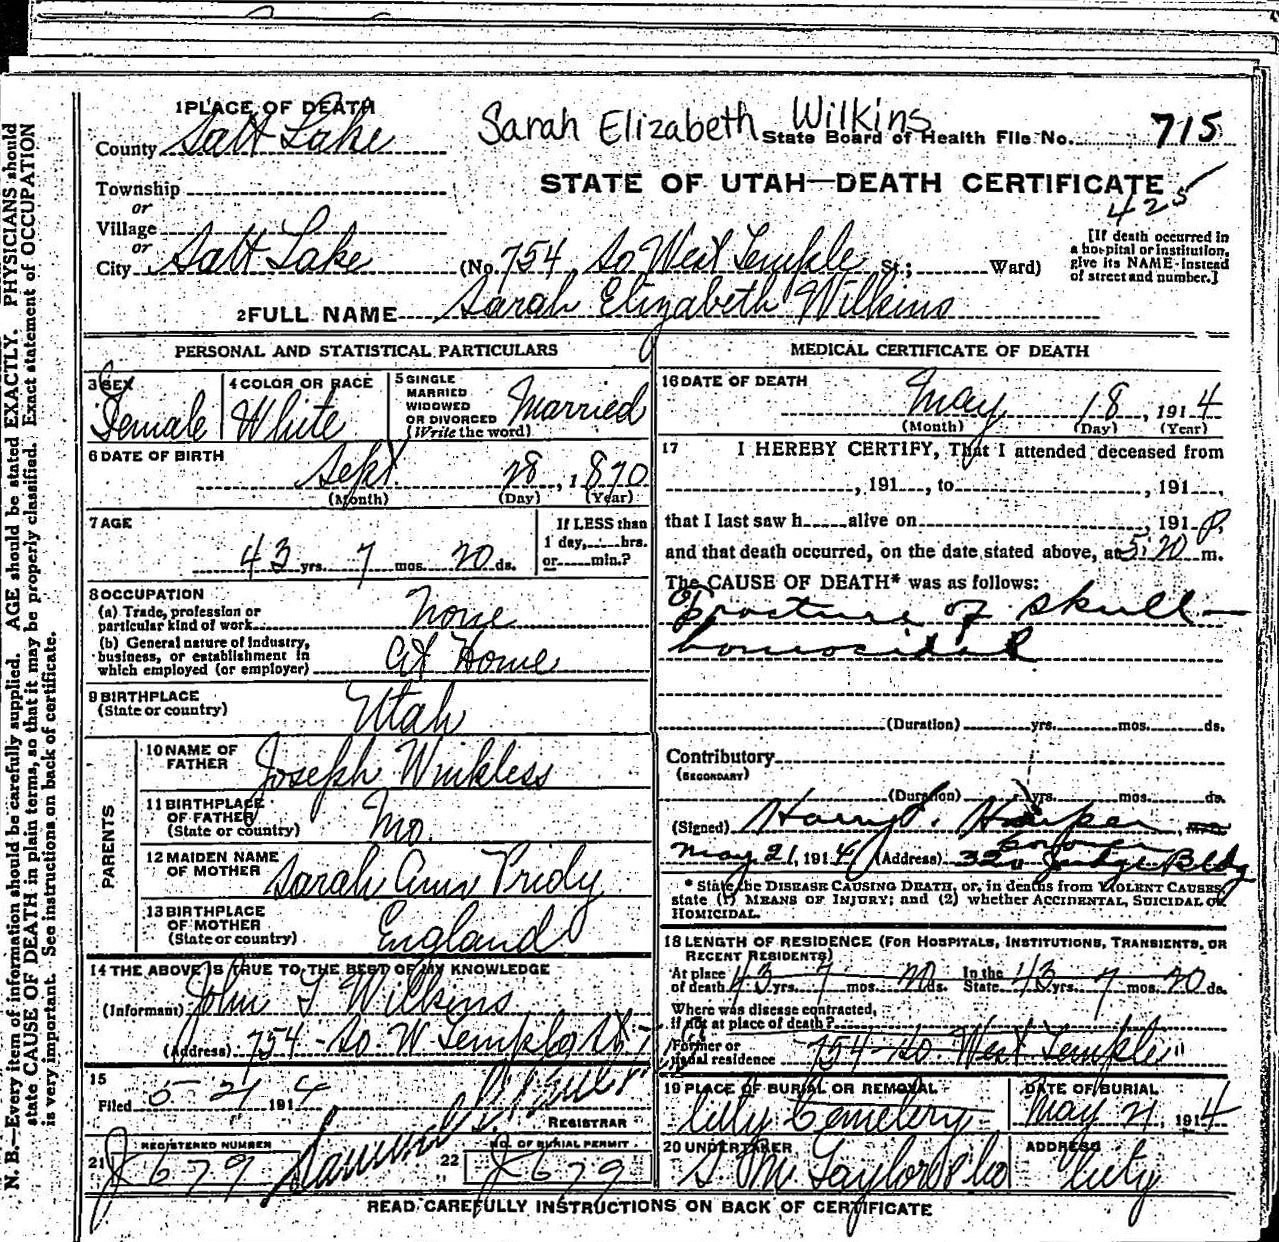 N. B.—Every item of information should be carefully supplied. AGE should be stated EXACTLY. PHYSICIANS should
state CAUSE OF DEATH in plain terms, so that it may be properly classified. Exact statement of OCCUPATION
is very important. See instructions on back of certificate.
1 PLACE OF DEATH
County Salt Lake
Sarah Elizabeth Wilkins
State Board of Health File No. 715
Township
or
Village
or
City Salt Lake
STATE OF UTAH—DEATH CERTIFICATE
425
(No. 754 So West Temple St.; Ward)
[If death occurred in
a hospital or institution,
give its NAME instead
of street and number.]
2 FULL NAME Sarah Elizabeth Wilkins
PERSONAL AND STATISTICAL PARTICULARS
3 SEX
Female
4 COLOR OR RACE
White
5 SINGLE
MARRIED
WIDOWED
OR DIVORCED
(Write the word)
Married
6 DATE OF BIRTH
Sept. 28, 1870
(Month) (Day) (Year)
7 AGE
43 yrs. 7 mos. 20 ds.
If LESS than
1 day, hrs.
or min.?
8 OCCUPATION
(a) Trade, profession or
particular kind of work None
(b) General nature of industry,
business, or establishment in
which employed (or employer) At Home
9 BIRTHPLACE
(State or country) Utah
PARENTS
10 NAME OF
FATHER Joseph Winkless
11 BIRTHPLACE
OF FATHER
(State or country) Mo.
12 MAIDEN NAME
OF MOTHER Sarah Ann Pridy
13 BIRTHPLACE
OF MOTHER
(State or country) England
14 THE ABOVE IS TRUE TO THE BEST OF MY KNOWLEDGE
(Informant) John T Wilkins
(Address) 754 So. W Temple St
15
Filed 5-21 1914
REGISTRAR
REGISTERED NUMBER
21 J 679
NO. OF BURIAL PERMIT
22 J 679
MEDICAL CERTIFICATE OF DEATH
16 DATE OF DEATH
May 18, 1914
(Month) (Day) (Year)
17 I HEREBY CERTIFY, That I attended deceased from
, 191 , to , 191 ,
that I last saw h alive on , 191
and that death occurred, on the date stated above, at 5:20 P. m.
The CAUSE OF DEATH* was as follows:
Fracture of skull —
homocidal
(Duration) yrs. mos. ds.
Contributory
(SECONDARY)
(Duration) yrs. mos. ds.
(Signed) Harry S. Harper M.D.
Coroner
May 21, 1914 (Address) 320 Judge Bldg
* State the DISEASE CAUSING DEATH, or, in deaths from VIOLENT CAUSES,
state (1) MEANS OF INJURY; and (2) whether ACCIDENTAL, SUICIDAL OR
HOMICIDAL.
18 LENGTH OF RESIDENCE (FOR HOSPITALS, INSTITUTIONS, TRANSIENTS, OR
RECENT RESIDENTS)
At place
of death 43 yrs. 7 mos. 20 ds. In the
State 43 yrs. 7 mos. 20 ds.
Where was disease contracted,
if not at place of death?
Former or
usual residence 754 So. West Temple
19 PLACE OF BURIAL OR REMOVAL
City Cemetery
DATE OF BURIAL
May 21 1914
20 UNDERTAKER
S. M Taylor & Co
ADDRESS
City
READ CAREFULLY INSTRUCTIONS ON BACK OF CERTIFICATE